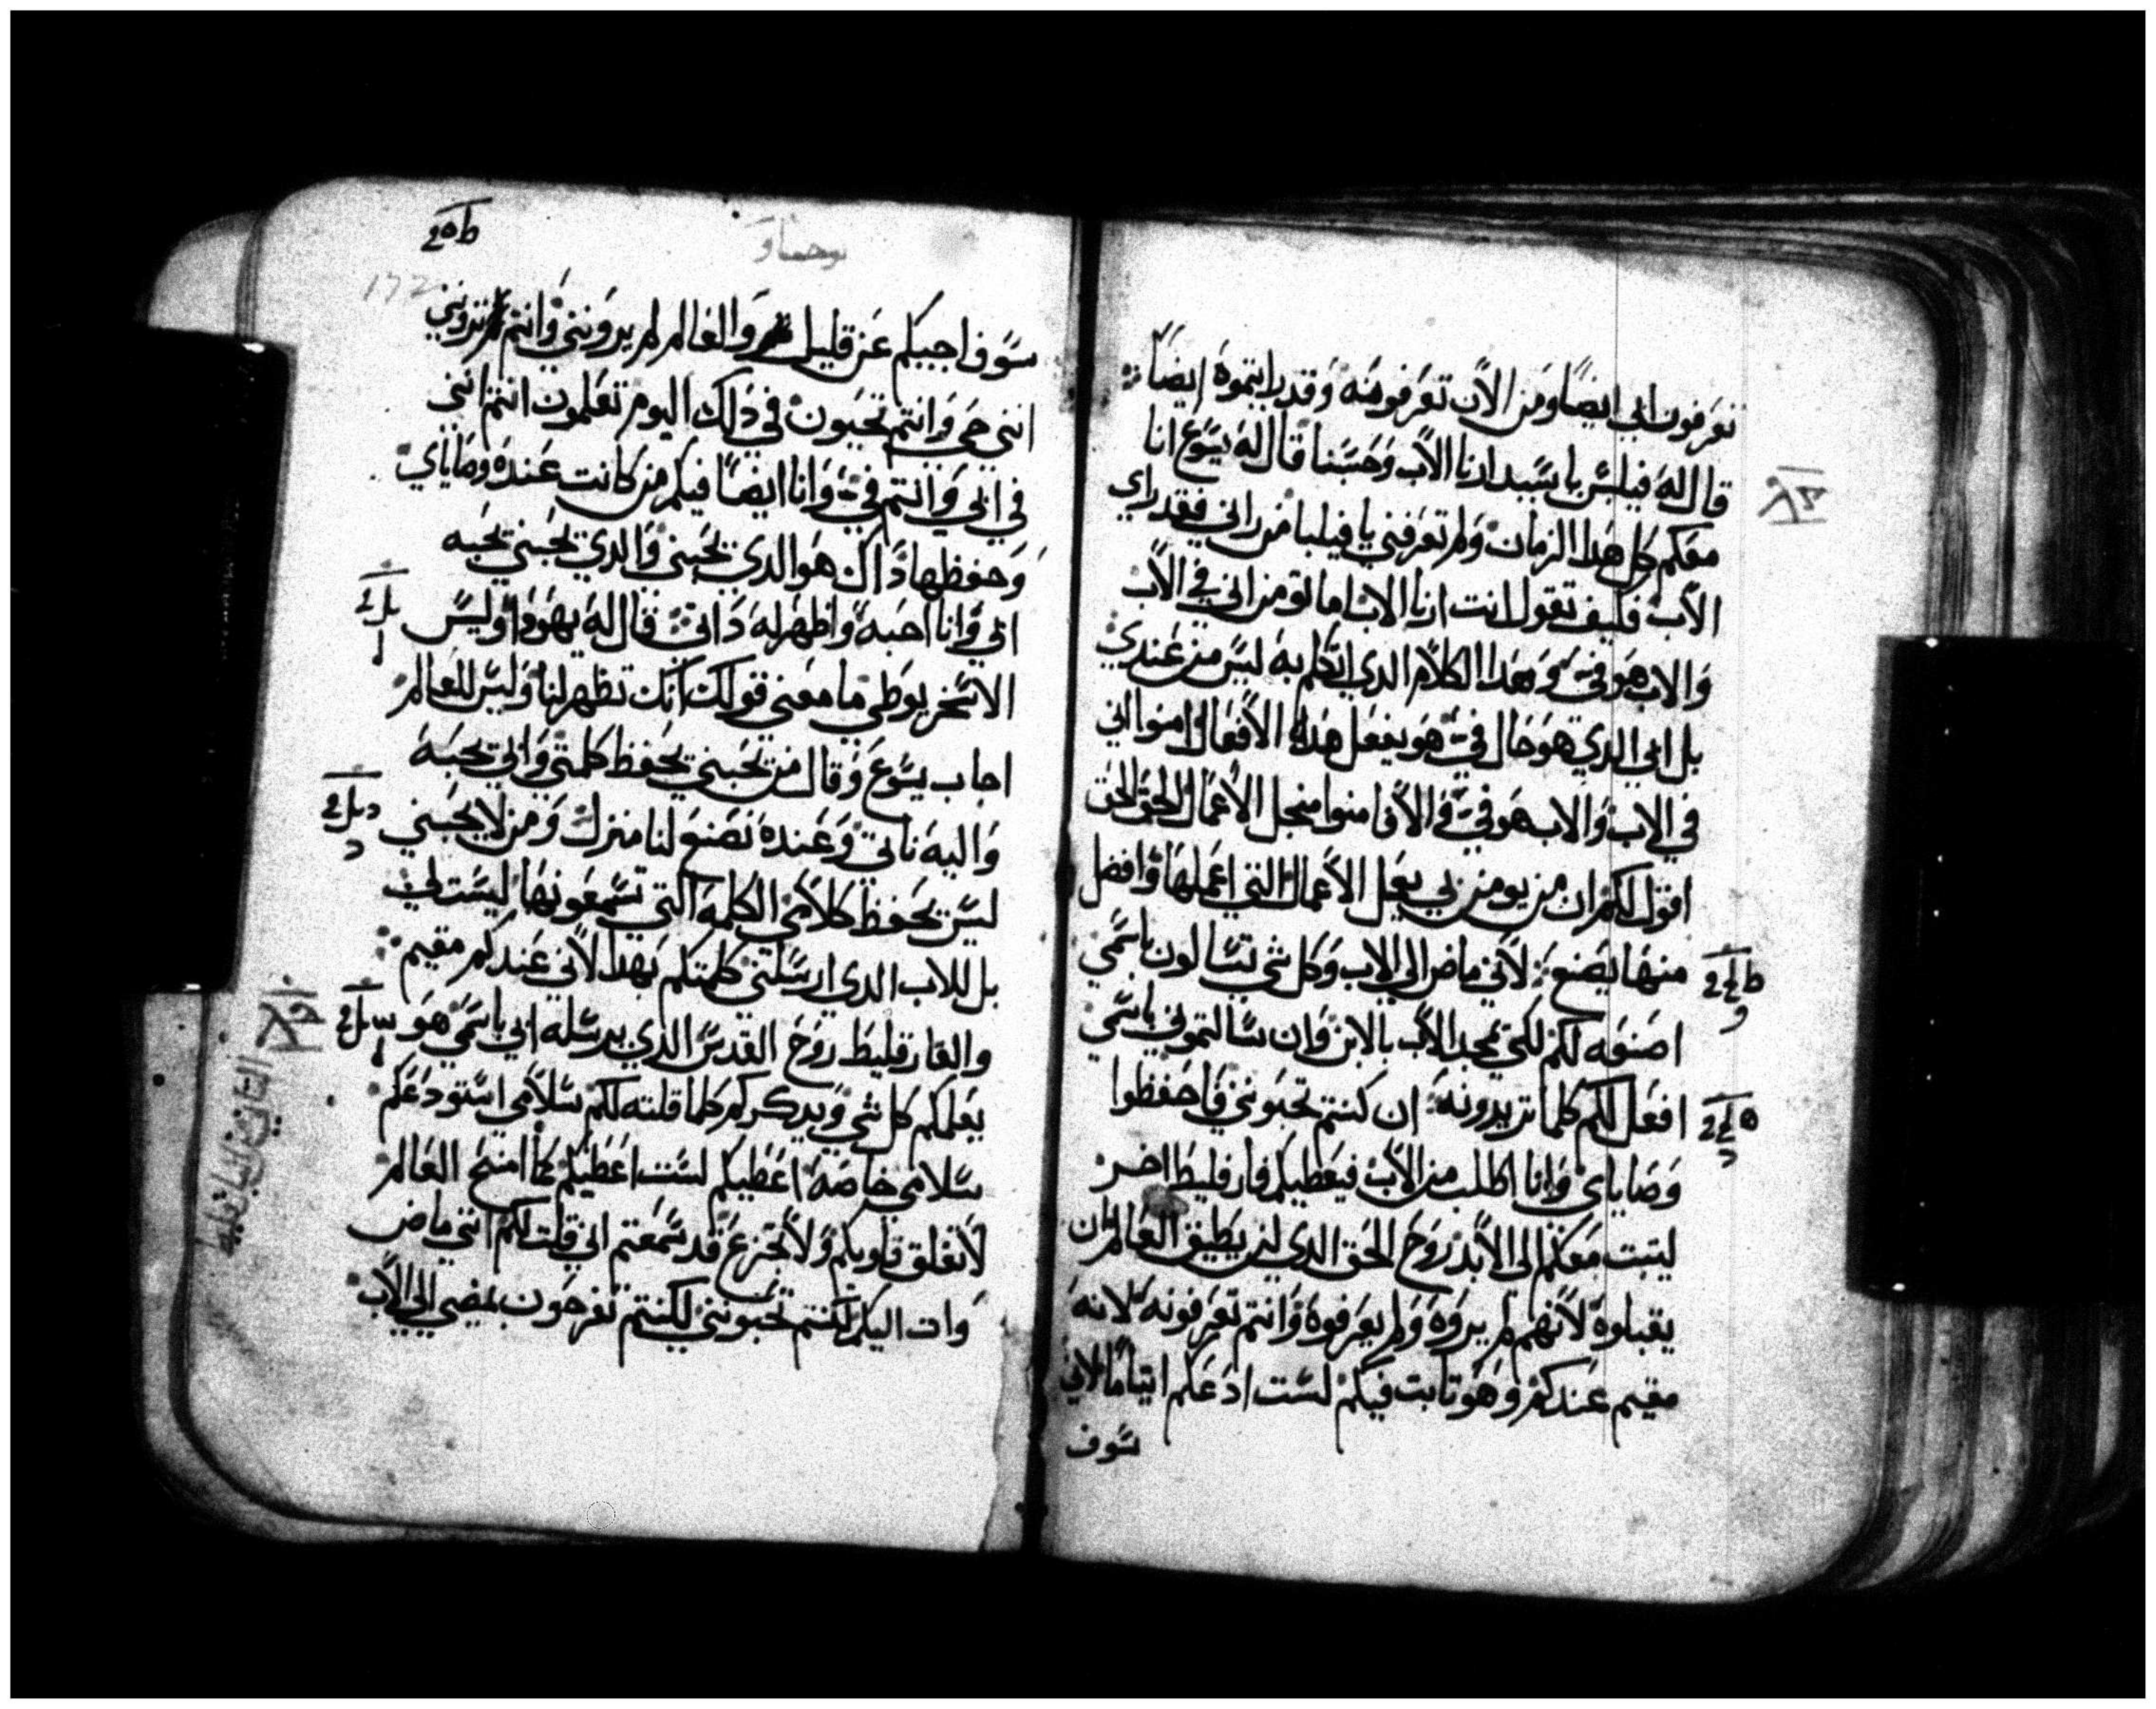 تعرفون ابي ايضًا ومن الان تعرفونه وقد رايتموه ايضًا
قال له فيلبس يا سيد ارنا الاب وحسبنا قال له يسوع انا
معكم كل هدا الزمان ولم تعرفني يا فيلبا من راني فقد راي
الاب فكيف تقول انت ارنا الاب اما تومن اني في الاب
والاب هو في وهدا الكلام الدي اتكلم به ليس من عندي
بل ابي الدي هو حال في هو يفعل هده الافعال امنوا اني
في الاب والاب هو في والا فامنوا منجل الاعمال الحق الحق
اقول لكم ان من يومن بي يعمل الاعمال التي اعملها وافضل
منها يصنع لاني ماض الي الاب وكل شي تسالون باسمي
اصنعه لكم لكي يمجد الاب بالابن وان سالتموني باسمي
افعل لكم كلما تريدونه ان كنتم تحبونني فاحفظوا
وصاياي وانا اطلب من الاب فيعطيكم فارقليط اخر
ليتبت معكم الي الابد روح الحق الدي لن يطيق العالم ان
يقبلوه لانهم لم يروه ولم يعرفوه وانتم تعرفونه لانه
مقيم عندكم وهو تابت فيكم لست ادعكم ايتامًا لاني
سوف
يوحنا
سوف اجيكم عن قليل والعالم لم يرونني وانتم ترونني
انني حي وانتم تحيون في دلك اليوم تعلمون انتم انني
في ابي وانتم في وانا ايضًا فيكم من كانت عنده وصاياي
وحفظها داك هو الدي يحبني والدي يحبني يحبه
ابي وانا احبه واظهر له داتي قال له يهودا وليس
الاسخريوطي ما معني قولك انك تظهر لنا وليس للعالم
اجاب يسوع وقال من يحبني يحفظ كلمتي وابي يحبه
واليه ناتي وعنده نصنع لنا منزل ومن لا يحبني
ليس يحفظ كلامي الكلمه التي تسمعونها ليست لي
بل للاب الدي ارسلني كلمتكم بهدا لاني عندكم مقيم
والفارقليط روح القدس الدي يرسله ابي باسمي هو
يعلمكم كل شي ويدكركم كلما قلته لكم سلامي استودعكم
سلامي خاصه اعطيكم لست اعطيكم كما امنح العالم
لا تقلق قلوبكم ولا تجزع قد سمعتم اني قلت لكم انني ماض
وات اليكم لو كنتم تحبونني لكنتم تفرحون بمضيي الي الاب